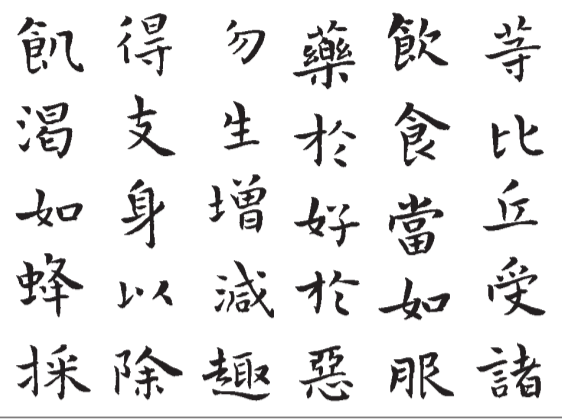 等比丘受諸
飲食當如服
藥於好於惡
勿生增減趣
得支身以除
飢渴如蜂採